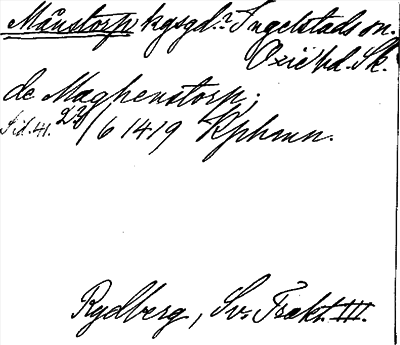 Månstorp kgsgd.? Ingelstads sn.
Oxie hd. Sk.
de Maghenstorp;
Sid. 41. 23/6 1419 Kphmn.
Rydberg, Sv. Trakt. III.